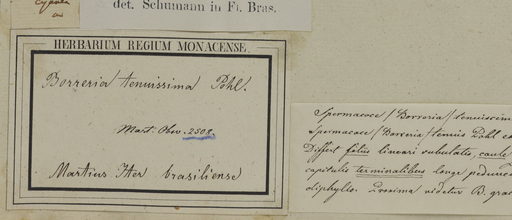 Cypola
det. Schumann in Fl. Bras.
HERBARIUM REGIUM MONACENSE.
Borreria tenuissima Pohl.
Mart. Obs. 2508.
Martius Iter brasiliense
Spermacoce / Borreria / tenuissim
Spermacoce / Borreria / tenuis Pohl
Differt foliis lineari subulatis, caule
capitulis terminalibus longe pedunc
oliphyllo. Proxima videtur B. grac